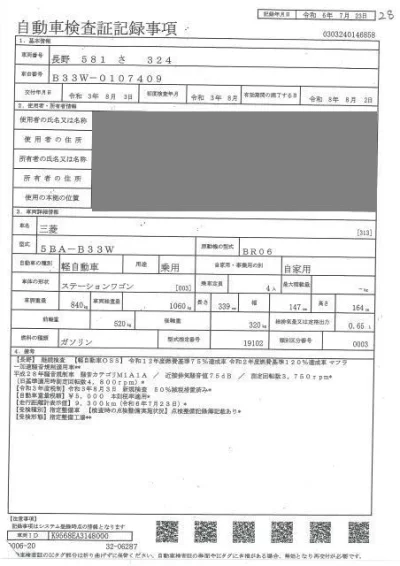 記録年月日 令和 6年 7月23日
28
自動車検査証記録事項
0303240146858
1．基本情報
車両番号 長野 581 さ 324
車台番号 B33W-0107409
交付年月日 令和 3年 8月 3日 初度検査年月 令和 3年 8月 有効期間の満了する日 令和 8年 8月 2日
2．使用者・所有者情報
使用者の氏名又は名称
使用者の住所
所有者の氏名又は名称
所有者の住所
使用の本拠の位置
3．車両詳細情報
車名 三菱 [313]
型式 5BA-B33W 原動機の型式 BR06
自動車の種別 軽自動車 用途 乗用 自家用・事業用の別 自家用
車体の形状 ステーションワゴン [003] 乗車定員 4人 最大積載量 -kg
車両重量 840kg 車両総重量 1060kg 長さ 339cm 幅 147cm 高さ 164cm
前軸重 520kg 後軸重 320kg 総排気量又は定格出力 0.65L
燃料の種類 ガソリン 型式指定番号 19102 類別区分番号 0003
4．備考
【長野】 継続検査 【軽自動車OSS】 令和12年度燃費基準75%達成車 令和2年度燃費基準120%達成車 マフラ
ー加速騒音規制適用車**
平成28年騒音規制車 騒音カテゴリM1A1A ／ 近接排気騒音値75dB ／ 測定回転数3,750rpm*
(旧基準適用時測定回転数4,800rpm)*
【令和3年度税制】令和3年8月3日 新規検査 50%減税措置済み*
【自動車重量税額】¥5,000 本則税率適用*
【走行距離計表示値】9,300km (令和6年7月23日)*
【受検種別】指定整備車 【検査時の点検整備実施状況】点検整備記録簿記載あり*
【受検形態】指定整備工場**
【注意事項】
記録事項はシステム登録時点の情報となります
車両ID K9568EA3148000
0006-20 32-06287